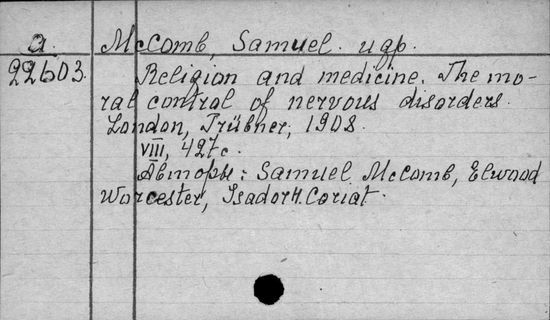 a. McComb, Samuel. и др.
22603. Religion and medicine. The mo-
ral control of nervous disorders.
London, Trübner, 1908.
VIII, 427 с.
Авторы: Samuel McComb, Elwood
Worcester, Isador H. Coriat.